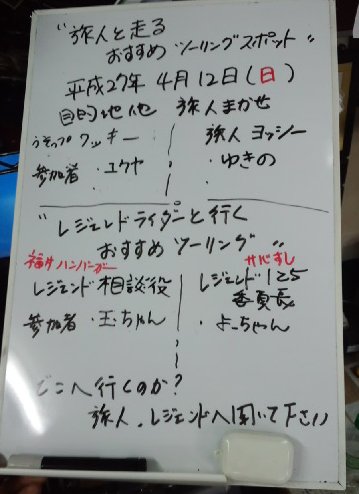 "旅人と走る
おすすめ ツーリングスポット"
平成27年 4月12日(日)
目的地他 旅人まかせ
うそップ クッキー
参加者 ・ユウヤ
旅人 ヨッシー
・ゆきの
"レジェンドライダーと行く
おすすめ ツーリング"
福井ハンバーガー
レジェンド相談役
参加者 ・玉ちゃん
サバずし
レジェンド125
委員長
・よーちゃん
どこへ行くのか?
旅人、レジェンドへ聞いて下さい